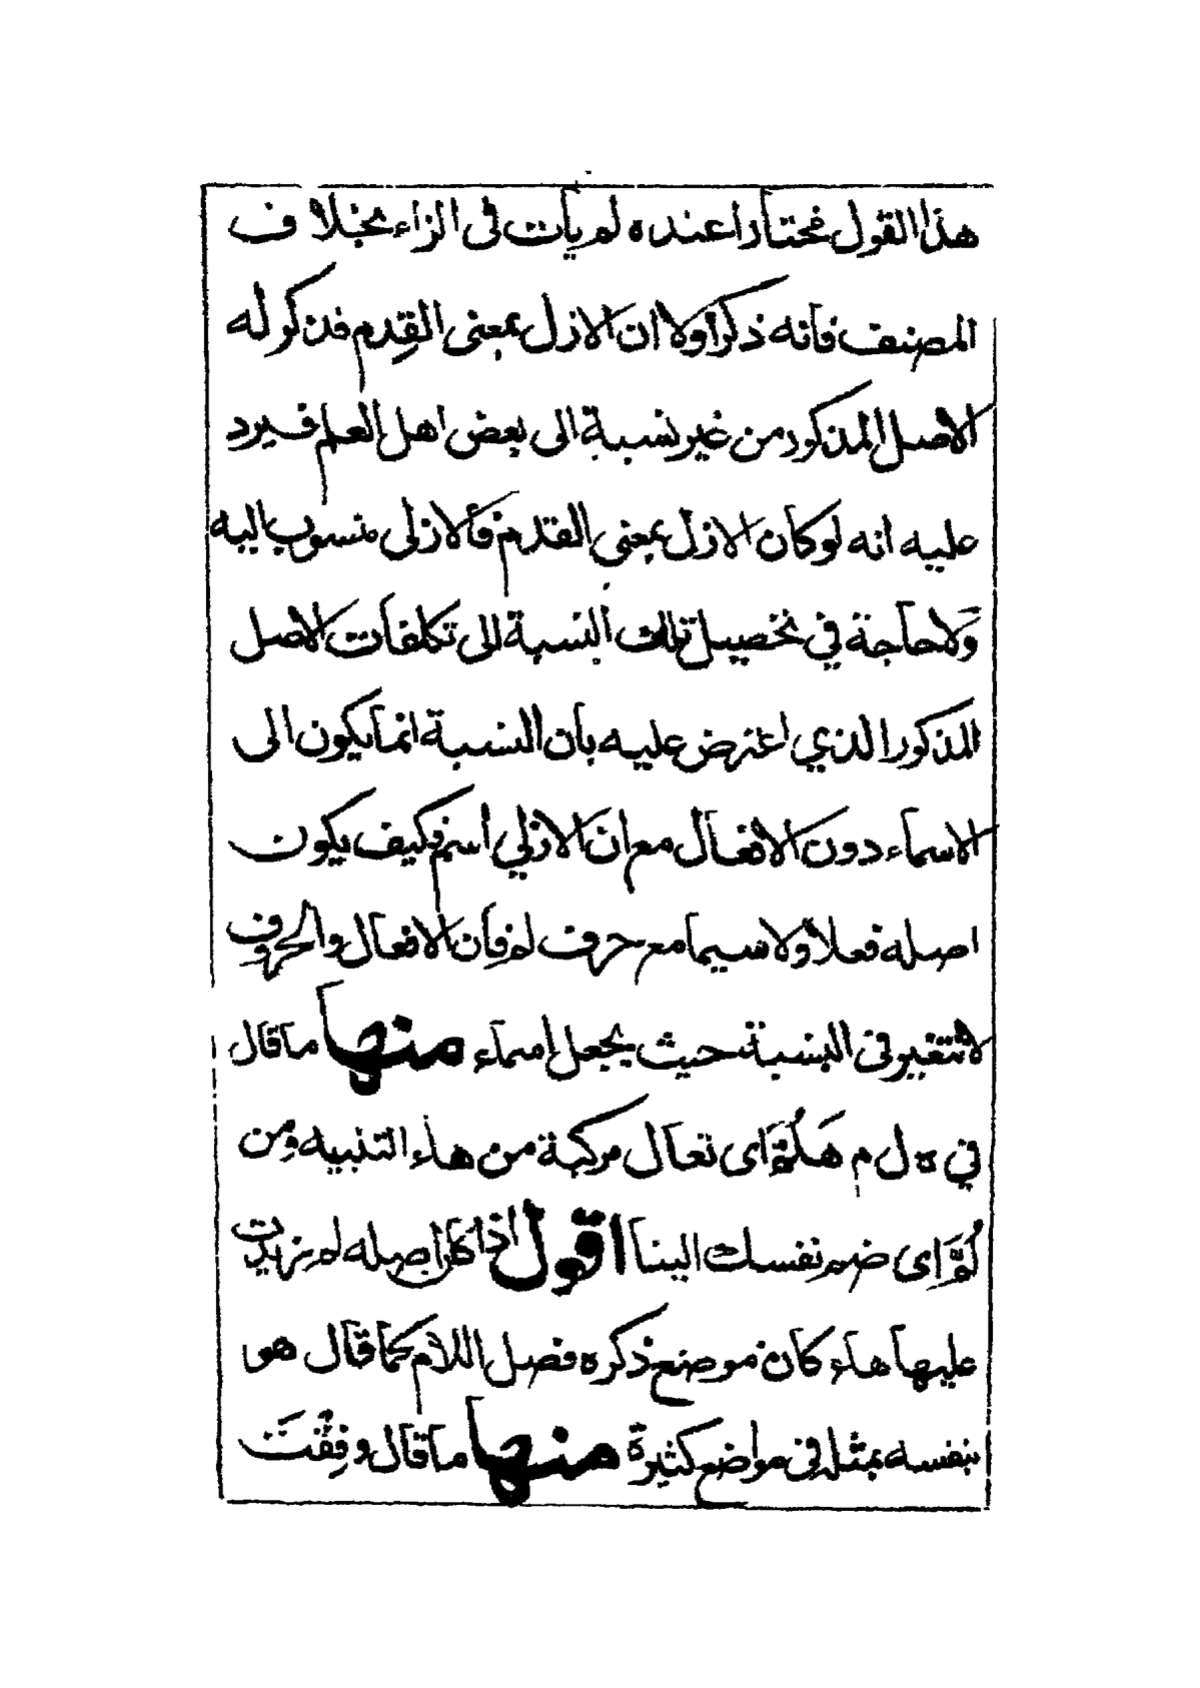 هذا القول مختارا عنده لم يأت في الزاء بخلاف
المصنف فانه ذكر أولا ان الازل بمعنى القِدم فذكر له
الاصل المذكور من غير نسبة الى بعض اهل العلم فيرد
عليه انه لو كان الازل بمعنى القدم فألازلى منسوب اليه
وَلاحاجة في تحصيل تلك النسبة الى تكلفات الاصل
المذكور الذي اعترض عليه بان النسبة انما يكون الى
الاسماء دون الافعال مع ان الازلي اسم فكيف يكون
اصله فعلا ولا سيما مع حرف لم فان الافعال والحروف
لاتتغير في النسبة حيث يجعل اسماء منها ما قال
في ه ل م هَلُمَّ اى تعال مركبة من هاء التنبيه ومن
لُمَّ اى ضم نفسك الينا اقول اذا كان اصله لم زيدت
عليها هاء كان موضع ذكره فصل اللام كما قال هو
بنفسه بمثله في مواضع كثيرة منها ما قال وفِقْتَ